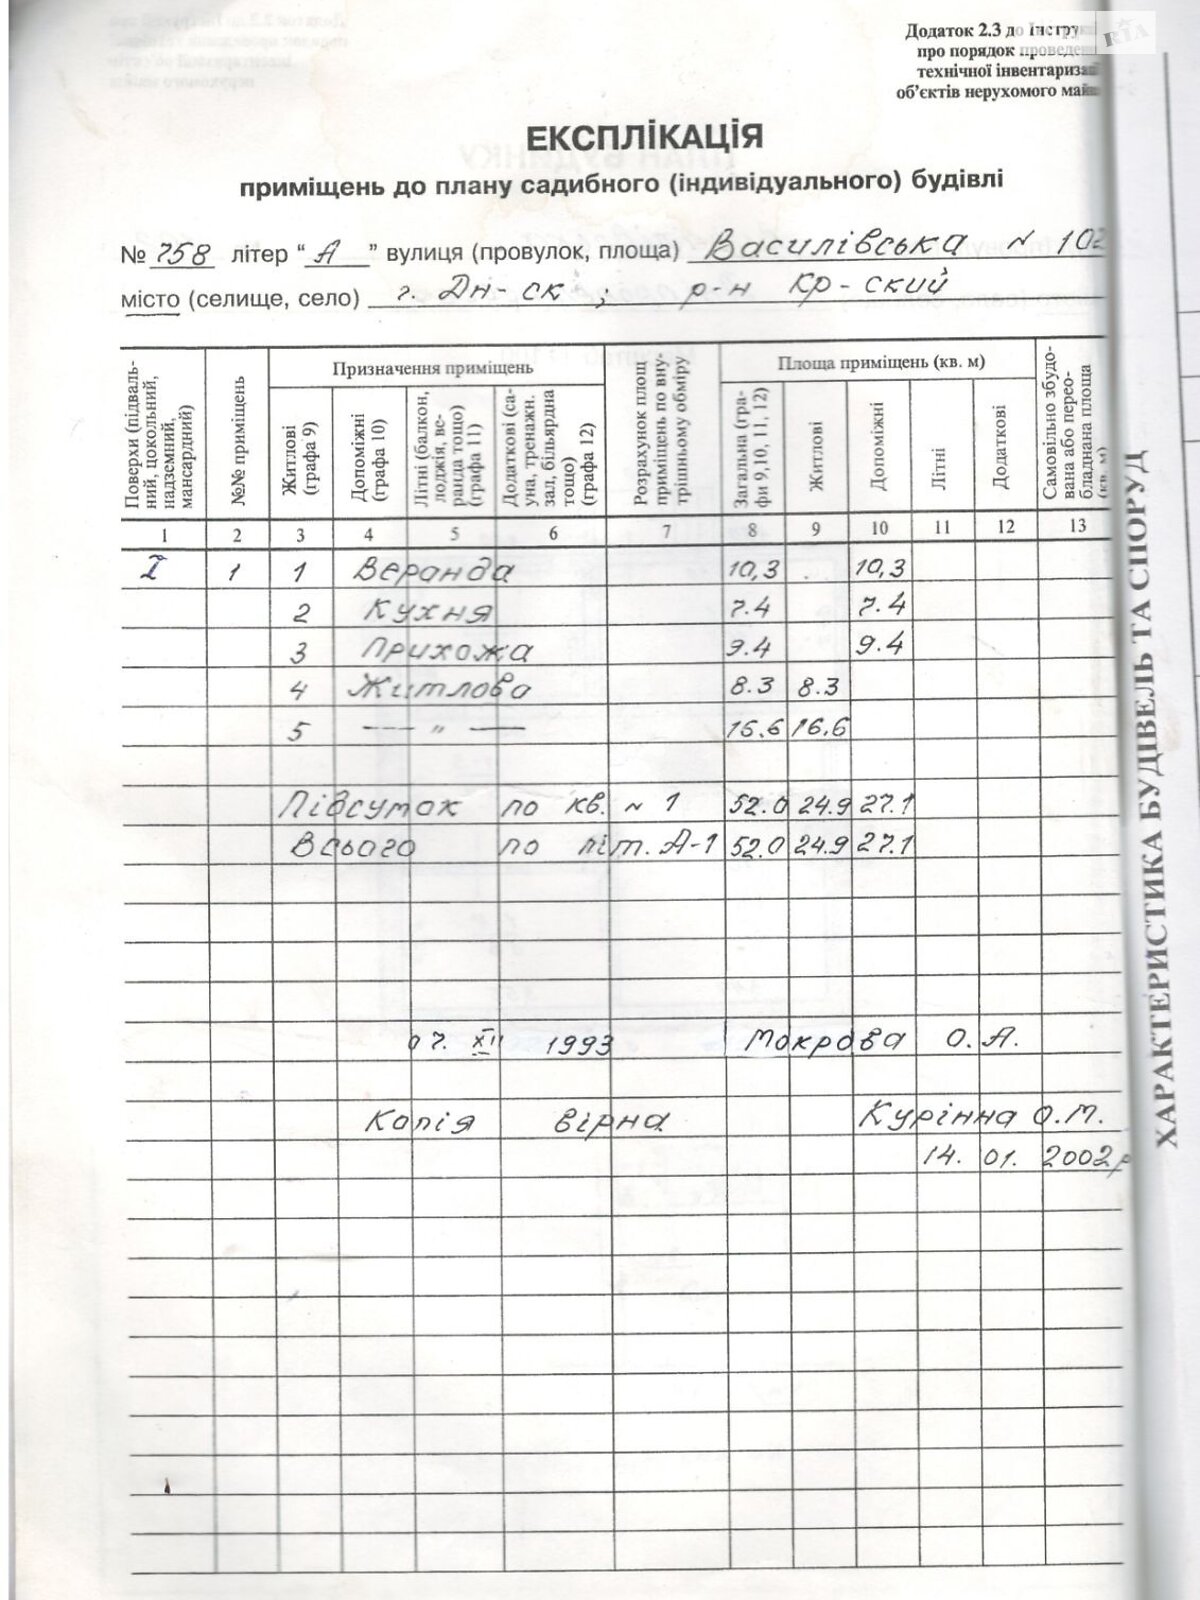 Додаток 2.3 до Інструкц
про порядок проведен
технічної інвентаризац
об’єктів нерухомого май
RIA
ЕКСПЛІКАЦІЯ
приміщень до плану садибного (індивідуального) будівлі
№ 758 літер “ А ” вулиця (провулок, площа) Василівська № 102
місто (селище, село) г. Дн-ск ; р-н Кр-ский
Поверхи (підвальний, цокольний, надземний, мансардний)
№№ приміщень
Призначення приміщень
Житлові (графа 9)
Допоміжні (графа 10)
Літні (балкон, лоджія, веранда тощо) (графа 11)
Додаткові (сауна, тренажн. зал, більярдна тощо) (графа 12)
Розрахунок площ приміщень по внутрішньому обміру
Площа приміщень (кв. м)
Загальна (графи 9,10, 11, 12)
Житлові
Допоміжні
Літні
Додаткові
Самовільно збудована або переобладнана площа (кв. м)
1 2 3 4 5 6 7 8 9 10 11 12 13
I 1 1 Веранда 10,3 10,3
2 Кухня 7.4 7.4
3 Прихожа 9.4 9.4
4 Житлова 8.3 8.3
5 — " — 16.6 16.6
Підсумок по кв. № 1 52.0 24.9 27.1
Всього по літ. А-1 52.0 24.9 27.1
07. XII 1993 Мокрова О. А.
Копія вірна Курінна О.М.
14. 01. 2002р
ХАРАКТЕРИСТИКА БУДІВЕЛЬ ТА СПОРУД